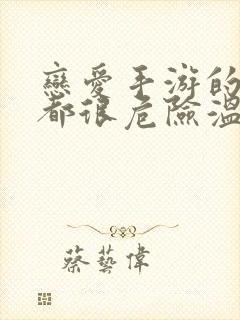 戀愛手游的
都很危險溫
蔡藝偉